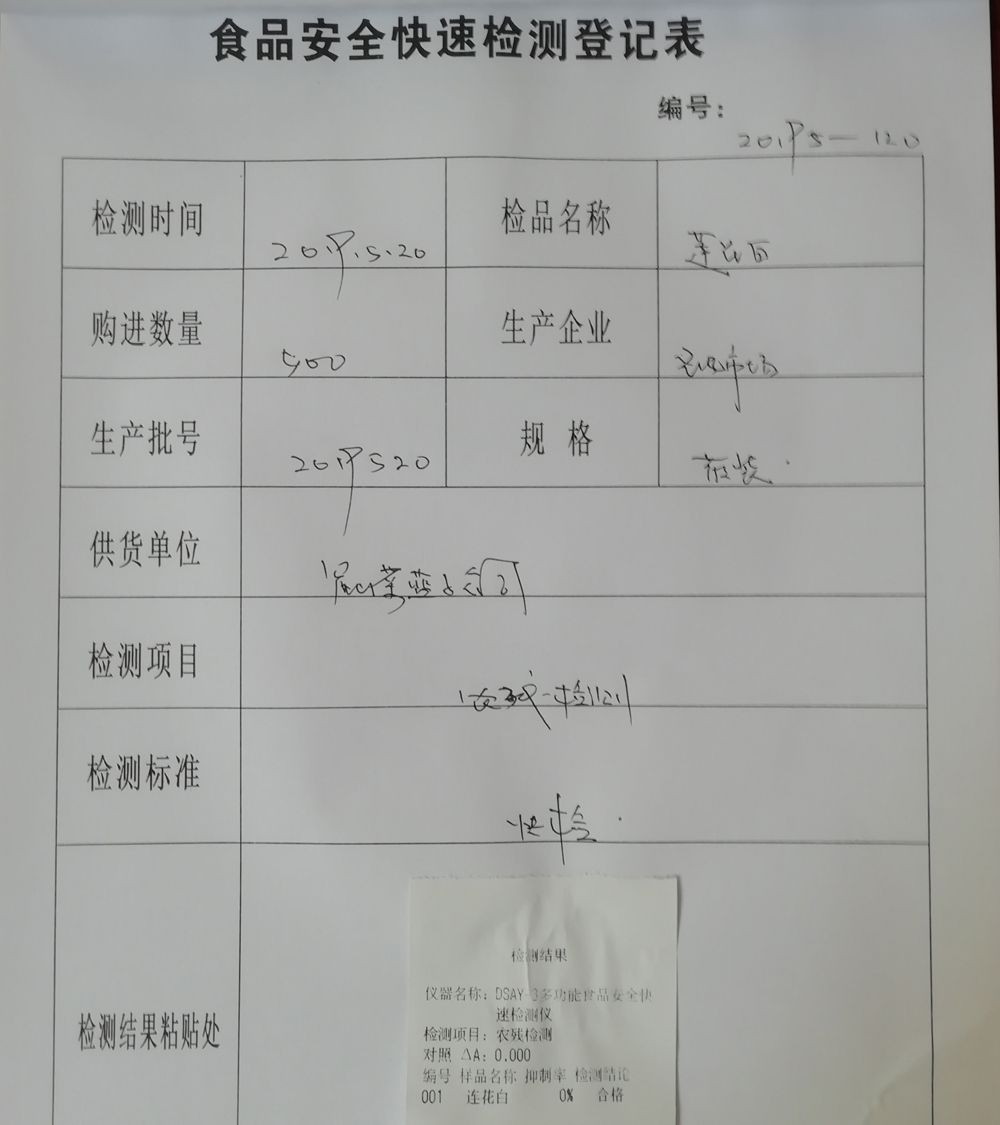 食品安全快速检测登记表
编号：
20195—120
检测时间 2019.5.20 检品名称 莲花白
购进数量 500 生产企业 市场
生产批号 2019520 规 格 散装
供货单位
检测项目 农残检测
检测标准 快检
检测结果粘贴处
检测结果
仪器名称：DSAY-3多功能食品安全快
速检测仪
检测项目：农残检测
对照 ΔA：0.000
编号 样品名称 抑制率 检测结论
001 连花白 0% 合格